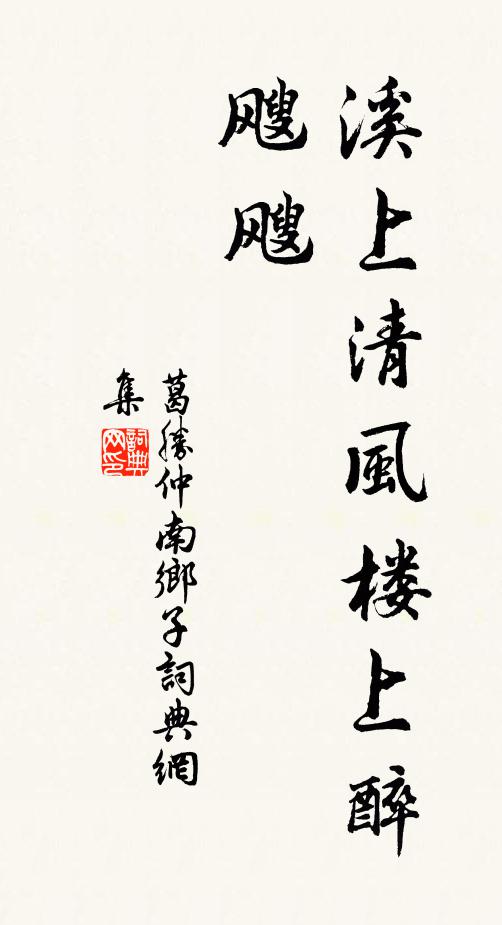 溪上清風楼上醉
颼颼
葛勝仲南鄉子詞典網
集
詞典
网印